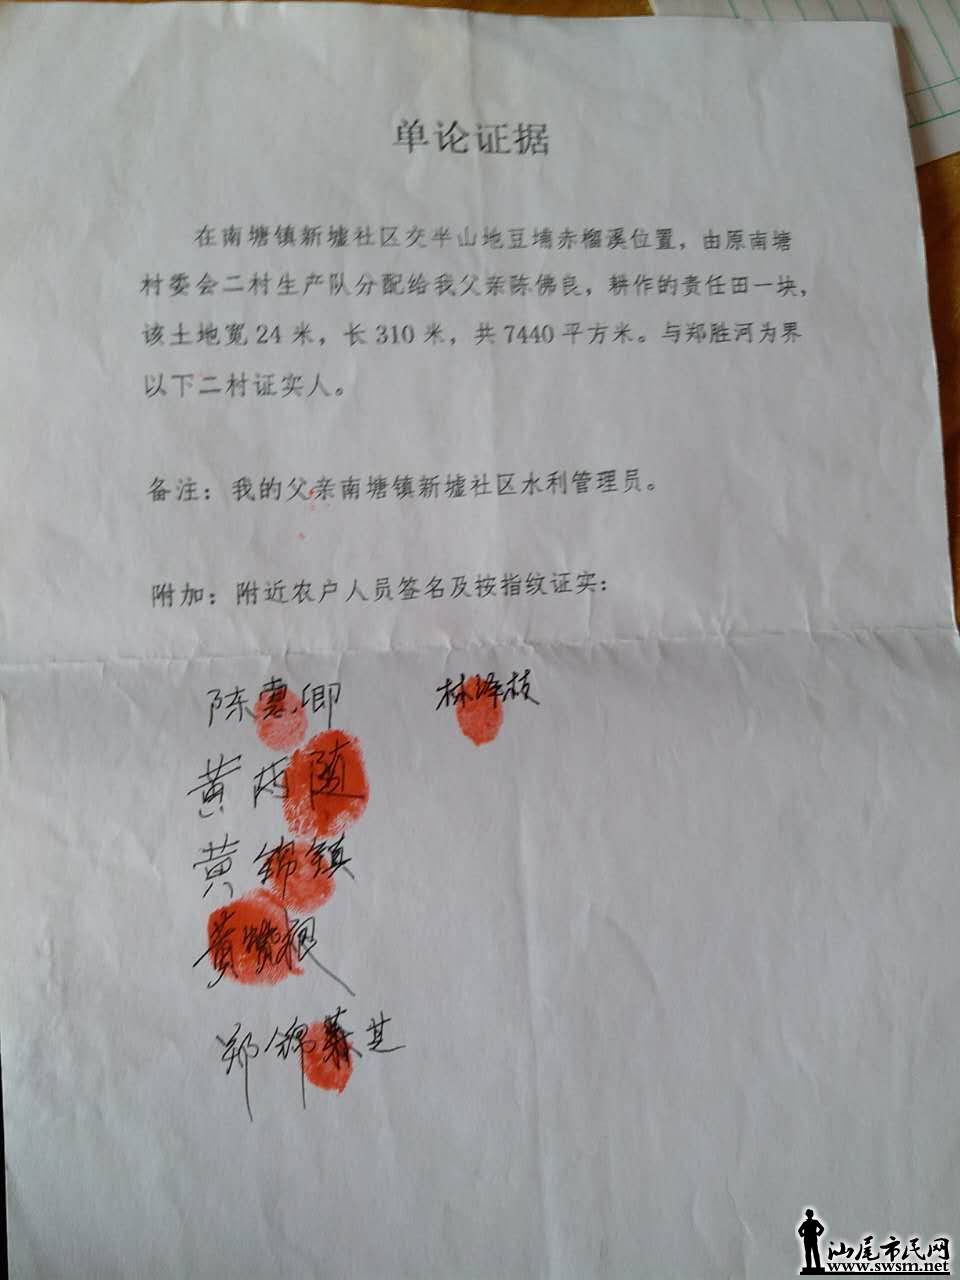 单论证据
在南塘镇新墟社区交半山地豆埔赤榴溪位置，由原南塘
村委会二村生产队分配给我父亲陈佛良，耕作的责任田一块，
该土地宽24米，长310米，共7440平方米。与郑胜河为界
以下二村证实人。
备注：我的父亲南塘镇新墟社区水利管理员。
附加：附近农户人员签名及按指纹证实：
陈惠卿 林泽枝
黄丙随
黄锦镇
黄赞根
郑锦 其
汕尾市民网
www.swsm.net